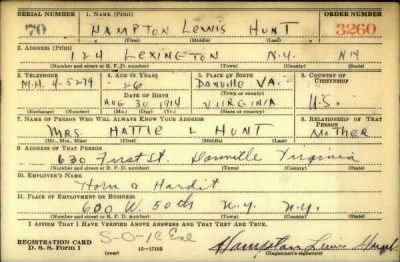 SERIAL NUMBER 1. NAME (Print) ORDER NUMBER
70 HAMPTON LEWIS HUNT 3260
(First) (Middle) (Last)
2. ADDRESS (Print)
124 LEXINGTON N.Y. NY
(Number and street or R. F. D. number) (Town) (County) (State)
3. TELEPHONE 4. AGE IN YEARS 5. PLACE OF BIRTH 6. COUNTRY OF CITIZENSHIP
M.H. 4-5279 26 DANVILLE VA.
DATE OF BIRTH (Town or county)
AUG 30 1914 VIRGINIA U.S.
(Exchange) (Number) (Mo.) (Day) (Yr.) (State or country)
7. NAME OF PERSON WHO WILL ALWAYS KNOW YOUR ADDRESS 8. RELATIONSHIP OF THAT PERSON
MRS. HATTIE L HUNT MOTHER
(Mr., Mrs., Miss) (First) (Middle) (Last)
9. ADDRESS OF THAT PERSON
630 First St. Danville Virginia
(Number and street or R. F. D. number) (Town) (County) (State)
10. EMPLOYER'S NAME
Horn & Hardit
11. PLACE OF EMPLOYMENT OR BUSINESS
600 W. 50th N.Y. N.Y.
(Number and street or R. F. D. number) (Town) (County) (State)
I AFFIRM THAT I HAVE VERIFIED ABOVE ANSWERS AND THAT THEY ARE TRUE.
REGISTRATION CARD
D. S. S. Form 1 (over) 16-17105 Hampton Lewis Hunt
(Registrant's signature)